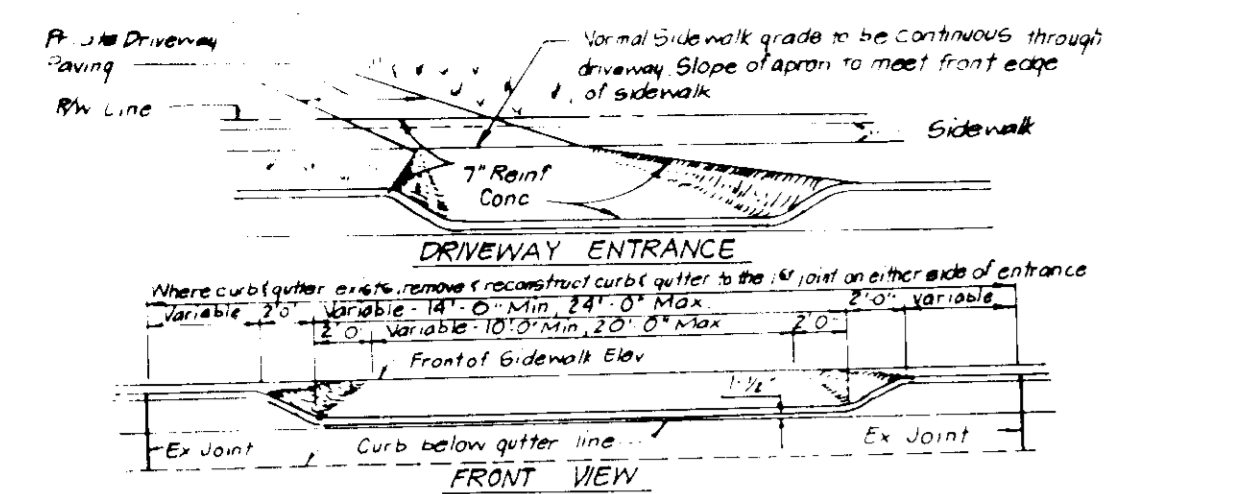 Driveway
Paving
R/W Line
Normal Sidewalk grade to be continuous through
driveway. Slope of apron to meet front edge
of sidewalk
Sidewalk
7" Reinf
Conc
DRIVEWAY ENTRANCE
Where curb & gutter exists, remove & reconstruct curb & gutter to the 1st joint on either side of entrance
Variable 2'0" Variable - 14'-0" Min, 24'-0" Max. 2'-0" variable
2'0" Variable - 10'0" Min, 20'0" Max 2'0"
Front of Sidewalk Elev
1-1/2"
Ex Joint Curb below gutter line Ex Joint
FRONT VIEW